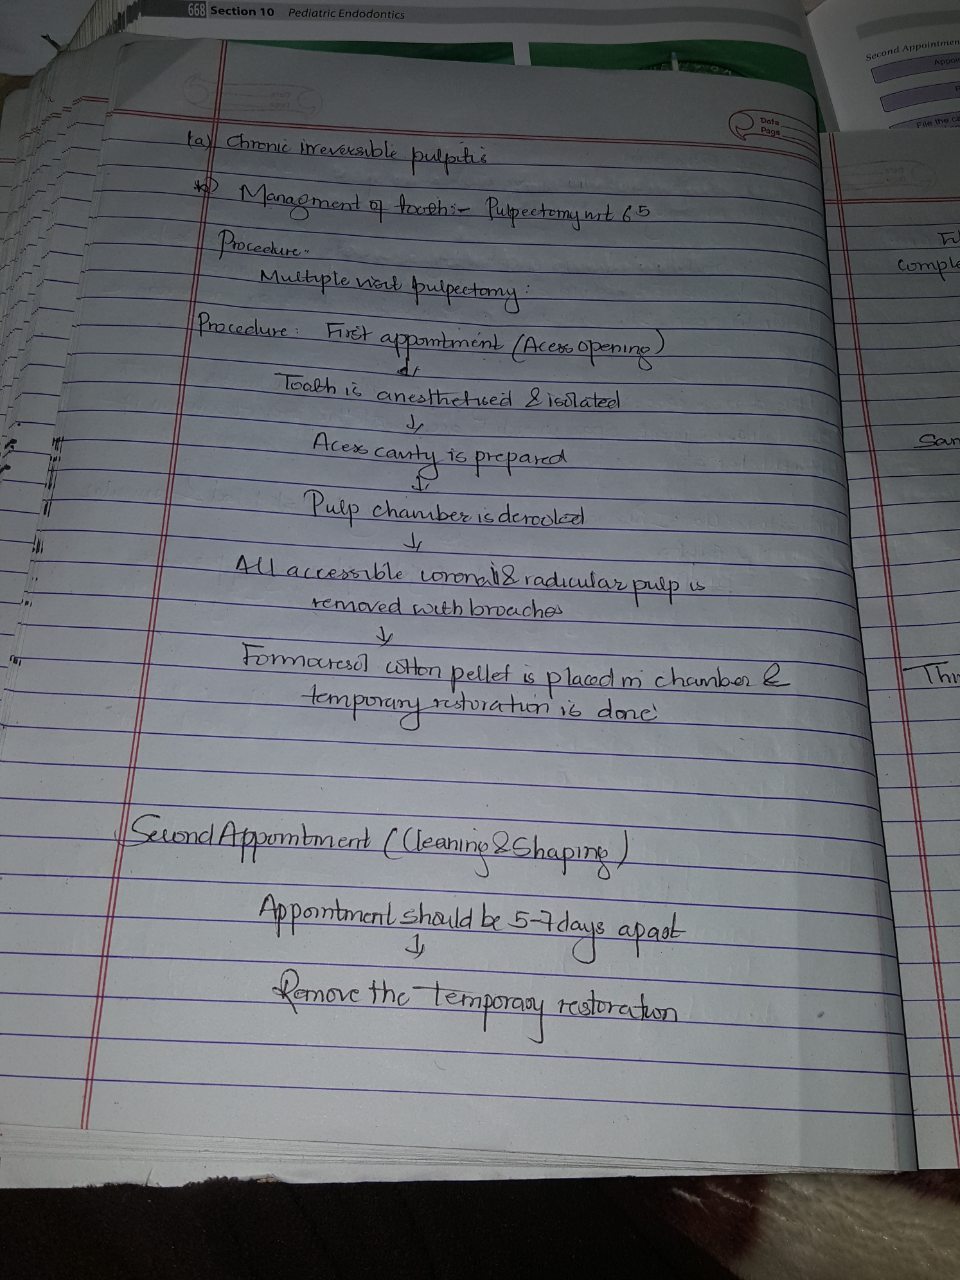 668 Section 10 Pediatric Endodontics
Second Appointmen
Appoi
File the ca
Date
Page
(a) Chronic irreversible pulpitis
Managment of tooth :- Pulpectomy wrt 65
Procedure -
Multiple visit pulpectomy :
Procedure : First appointment (Acess opening)
↓
Tooth is anesthetised & isolated
↓
Acess cavity is prepared
↓
Pulp chamber is derooled
↓
All accessible coronal & radicular pulp is
removed with broaches
↓
Formocresol cotton pellet is placed in chamber &
temporary restoration is done
Second Appointment (Cleaning & Shaping)
Appointment should be 5-7 days apart
↓
Remove the temporary restoration
comple
San
Thi